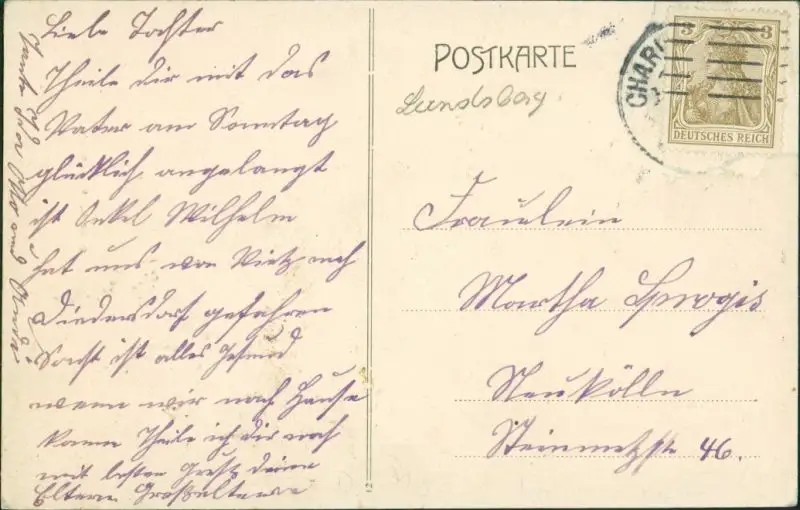 Liebe Tochter
Theile dir mit das
Vater am Sonntag
glücklich angelangt
ist Onkel Wilhelm
hat uns von Vietz nach
Diedersdorf gefahren
Sonst ist alles gesund
wenn wir nach Hause
kamm Theile ich dir noch
mit besten Gruß deine
Eltern Großeltern
Otto und
POSTKARTE
Landsberg.
CHARL
3 3
DEUTSCHES REICH
Fräulein
Martha Sprogis
Neukölln
Steinmetzstr 46.
2